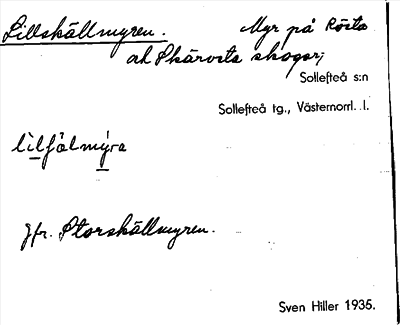 Lillskällmyren. Myr på Rösta
och Skärvsta skogar,
Sollefteå s:n
Sollefteå tg., Västernorrl. l.
lìlfälmýra
Jfr. Storskällmyren.
Sven Hiller 1935.